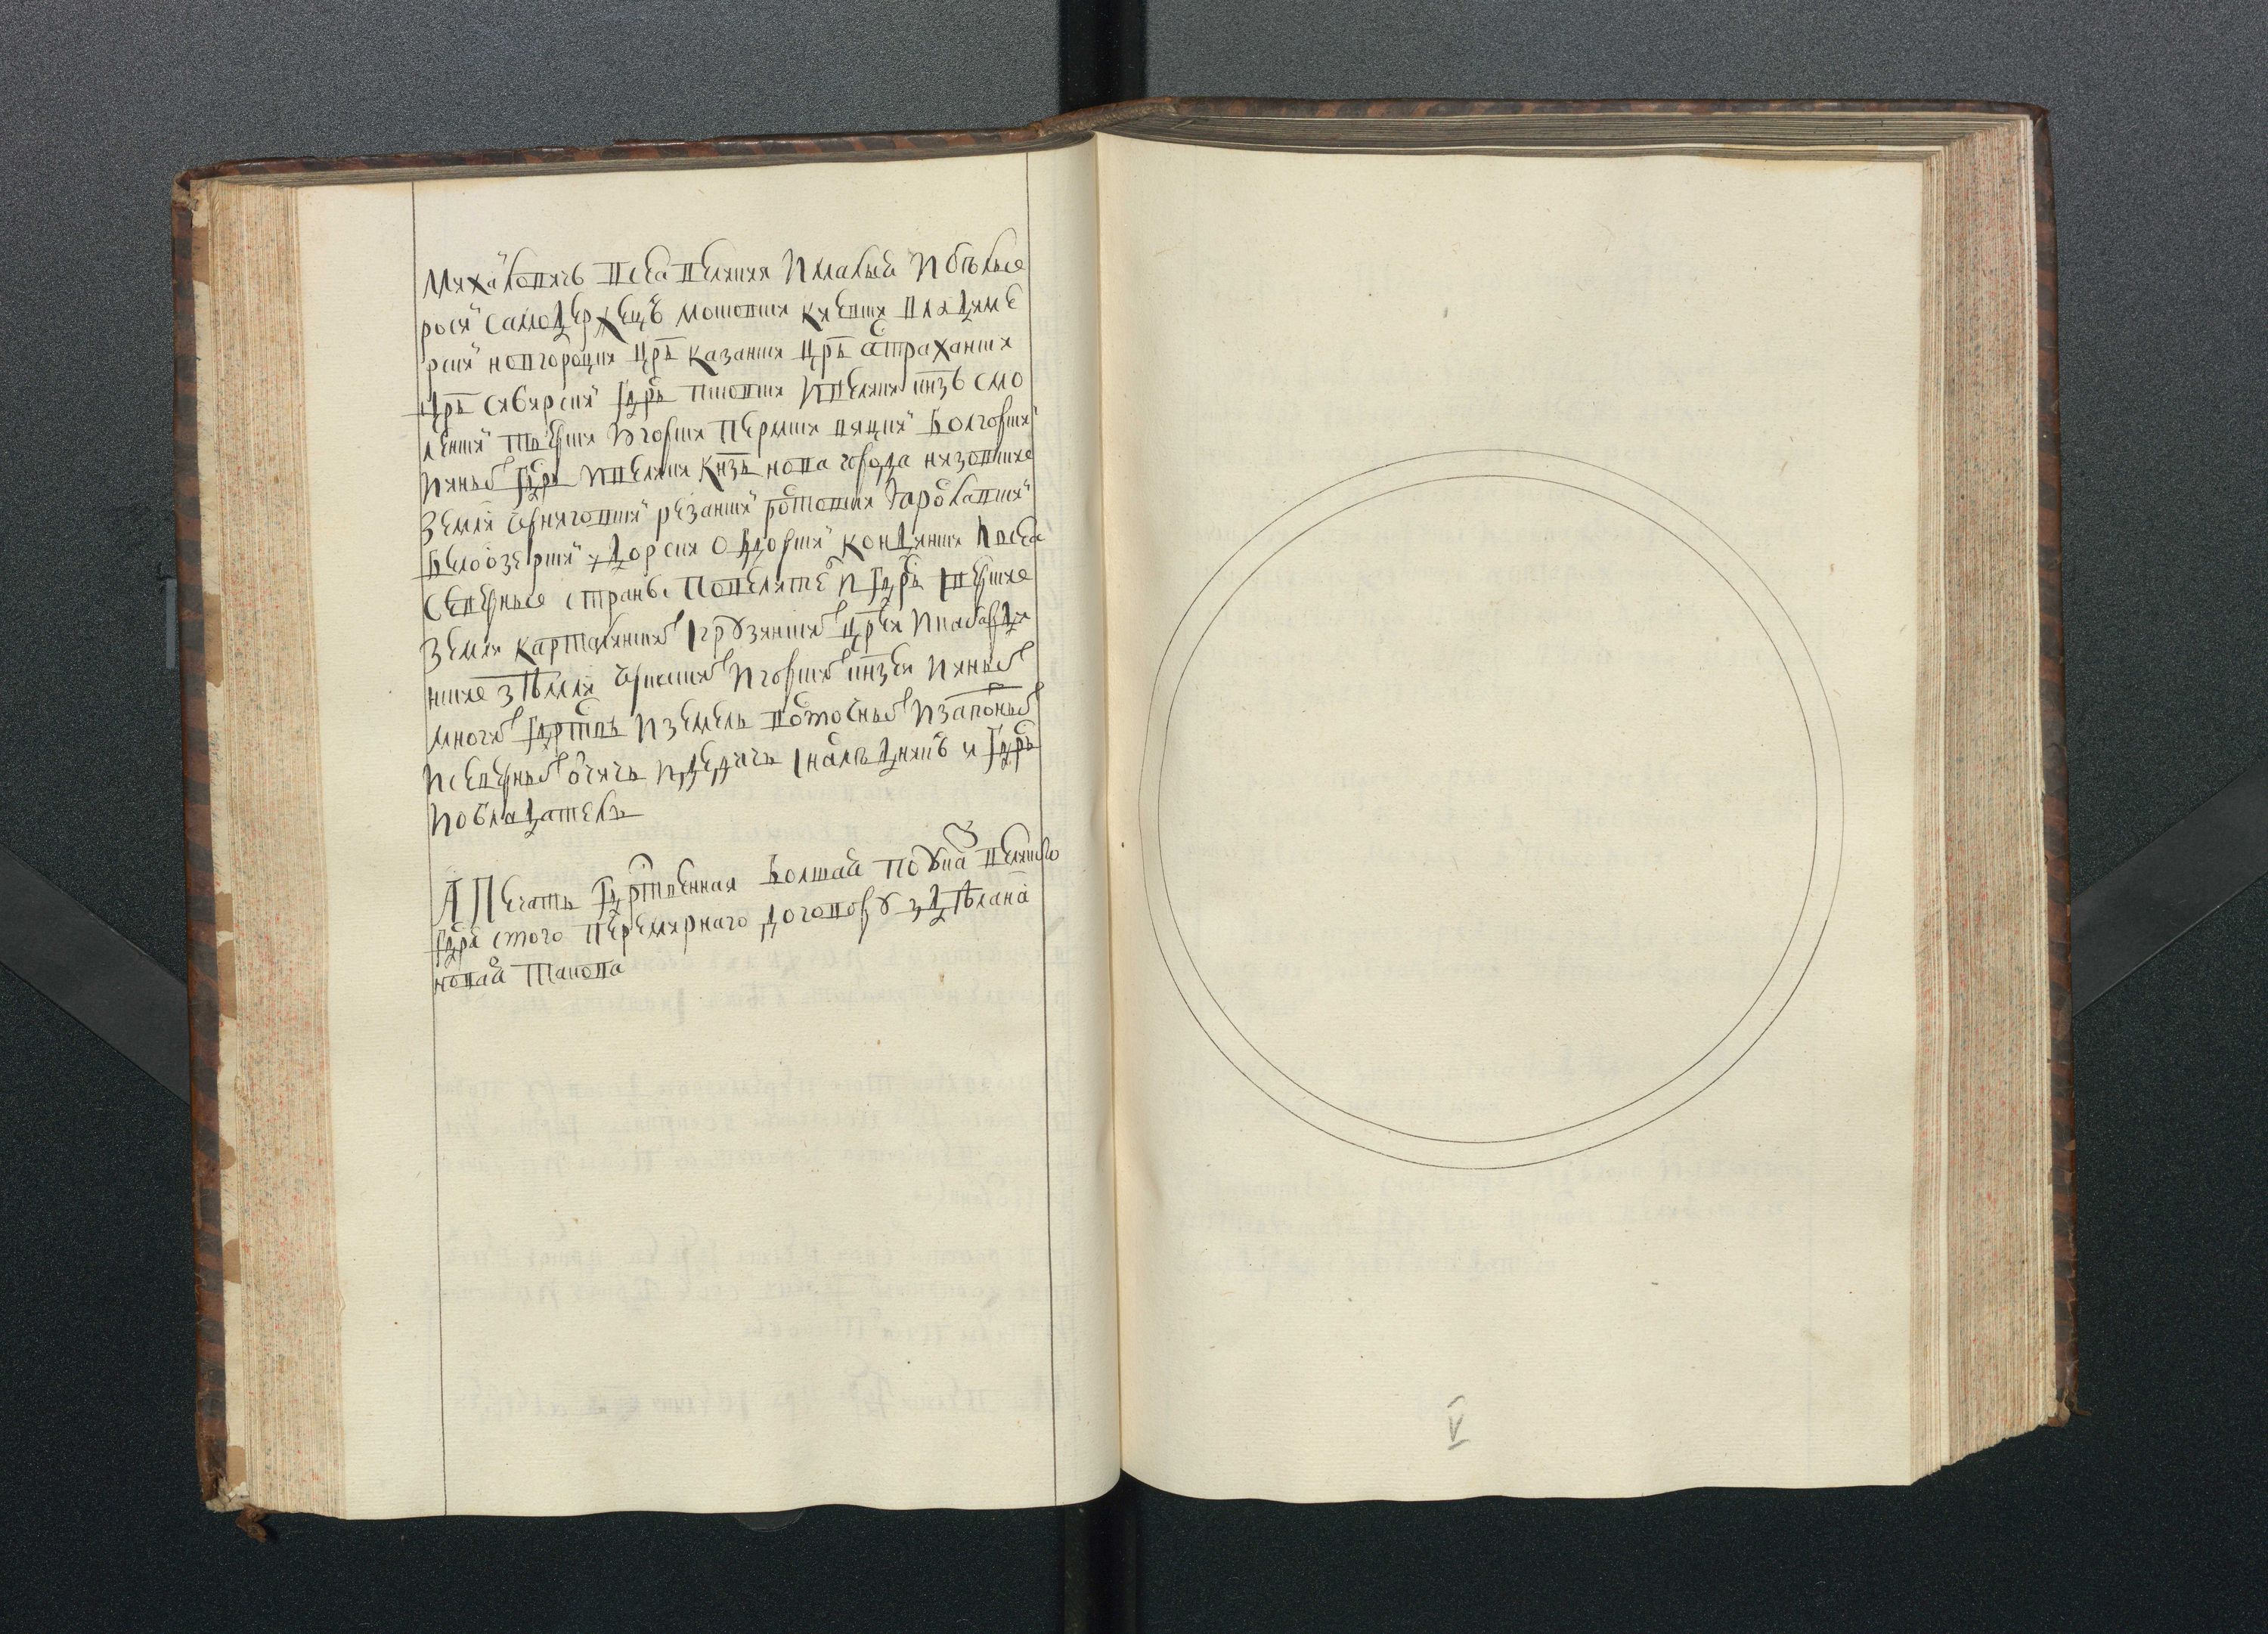 Михаiловичь всеа великия и малыя и белыя
росиi самодержецъ московски киевски владиме
рски новгородцки црь казански црь астрахански
црь сибирски гдрь псковски и великиi кнзь смо
ленски тверски югорски пермски вяцки болгорски
и иных гдрь и великиi кнзь нова города низовские
земли черниговски резански ростовски яро́славски
белоозерски удорски обдорски кондински и всеа
северные страны повелитель и гдрь иверские
земли карталински грузински цреи и кабарди
нские земли черкаских и горских кнзеи и иных
многих гдрствъ и земель восточных и западных
и северных отчичь и дедичь и наследникъ и гдрь
и обладатель
А печать гдрственная болшая по указу великого
гдря с того перемирнаго договору зделана
новая такова
V